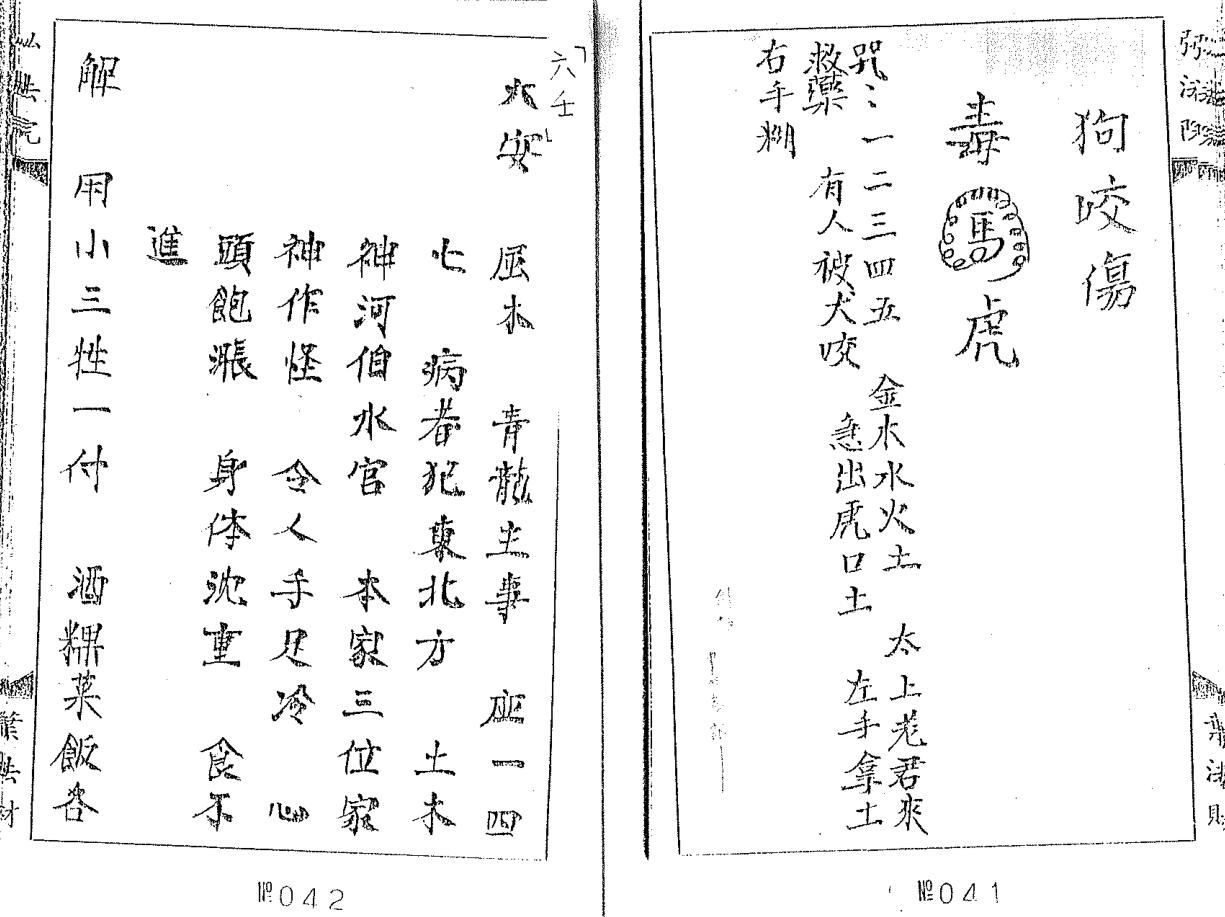 狗咬傷
毒馬虎
咒：一二三四五　金木水火土　太上老君來
救藥　有人被犬咬　急出虎口土　左手拿土
右手糊
№041
「六壬」
大安　屬木　青龍主事　應一四
七　病者犯東北方　土木
神河伯水官　本家三位家
神作怪　令人手足冷　心
頭飽漲　身体沈重　食不
進
解　用小三牲一付　酒粿菜飯各
№042